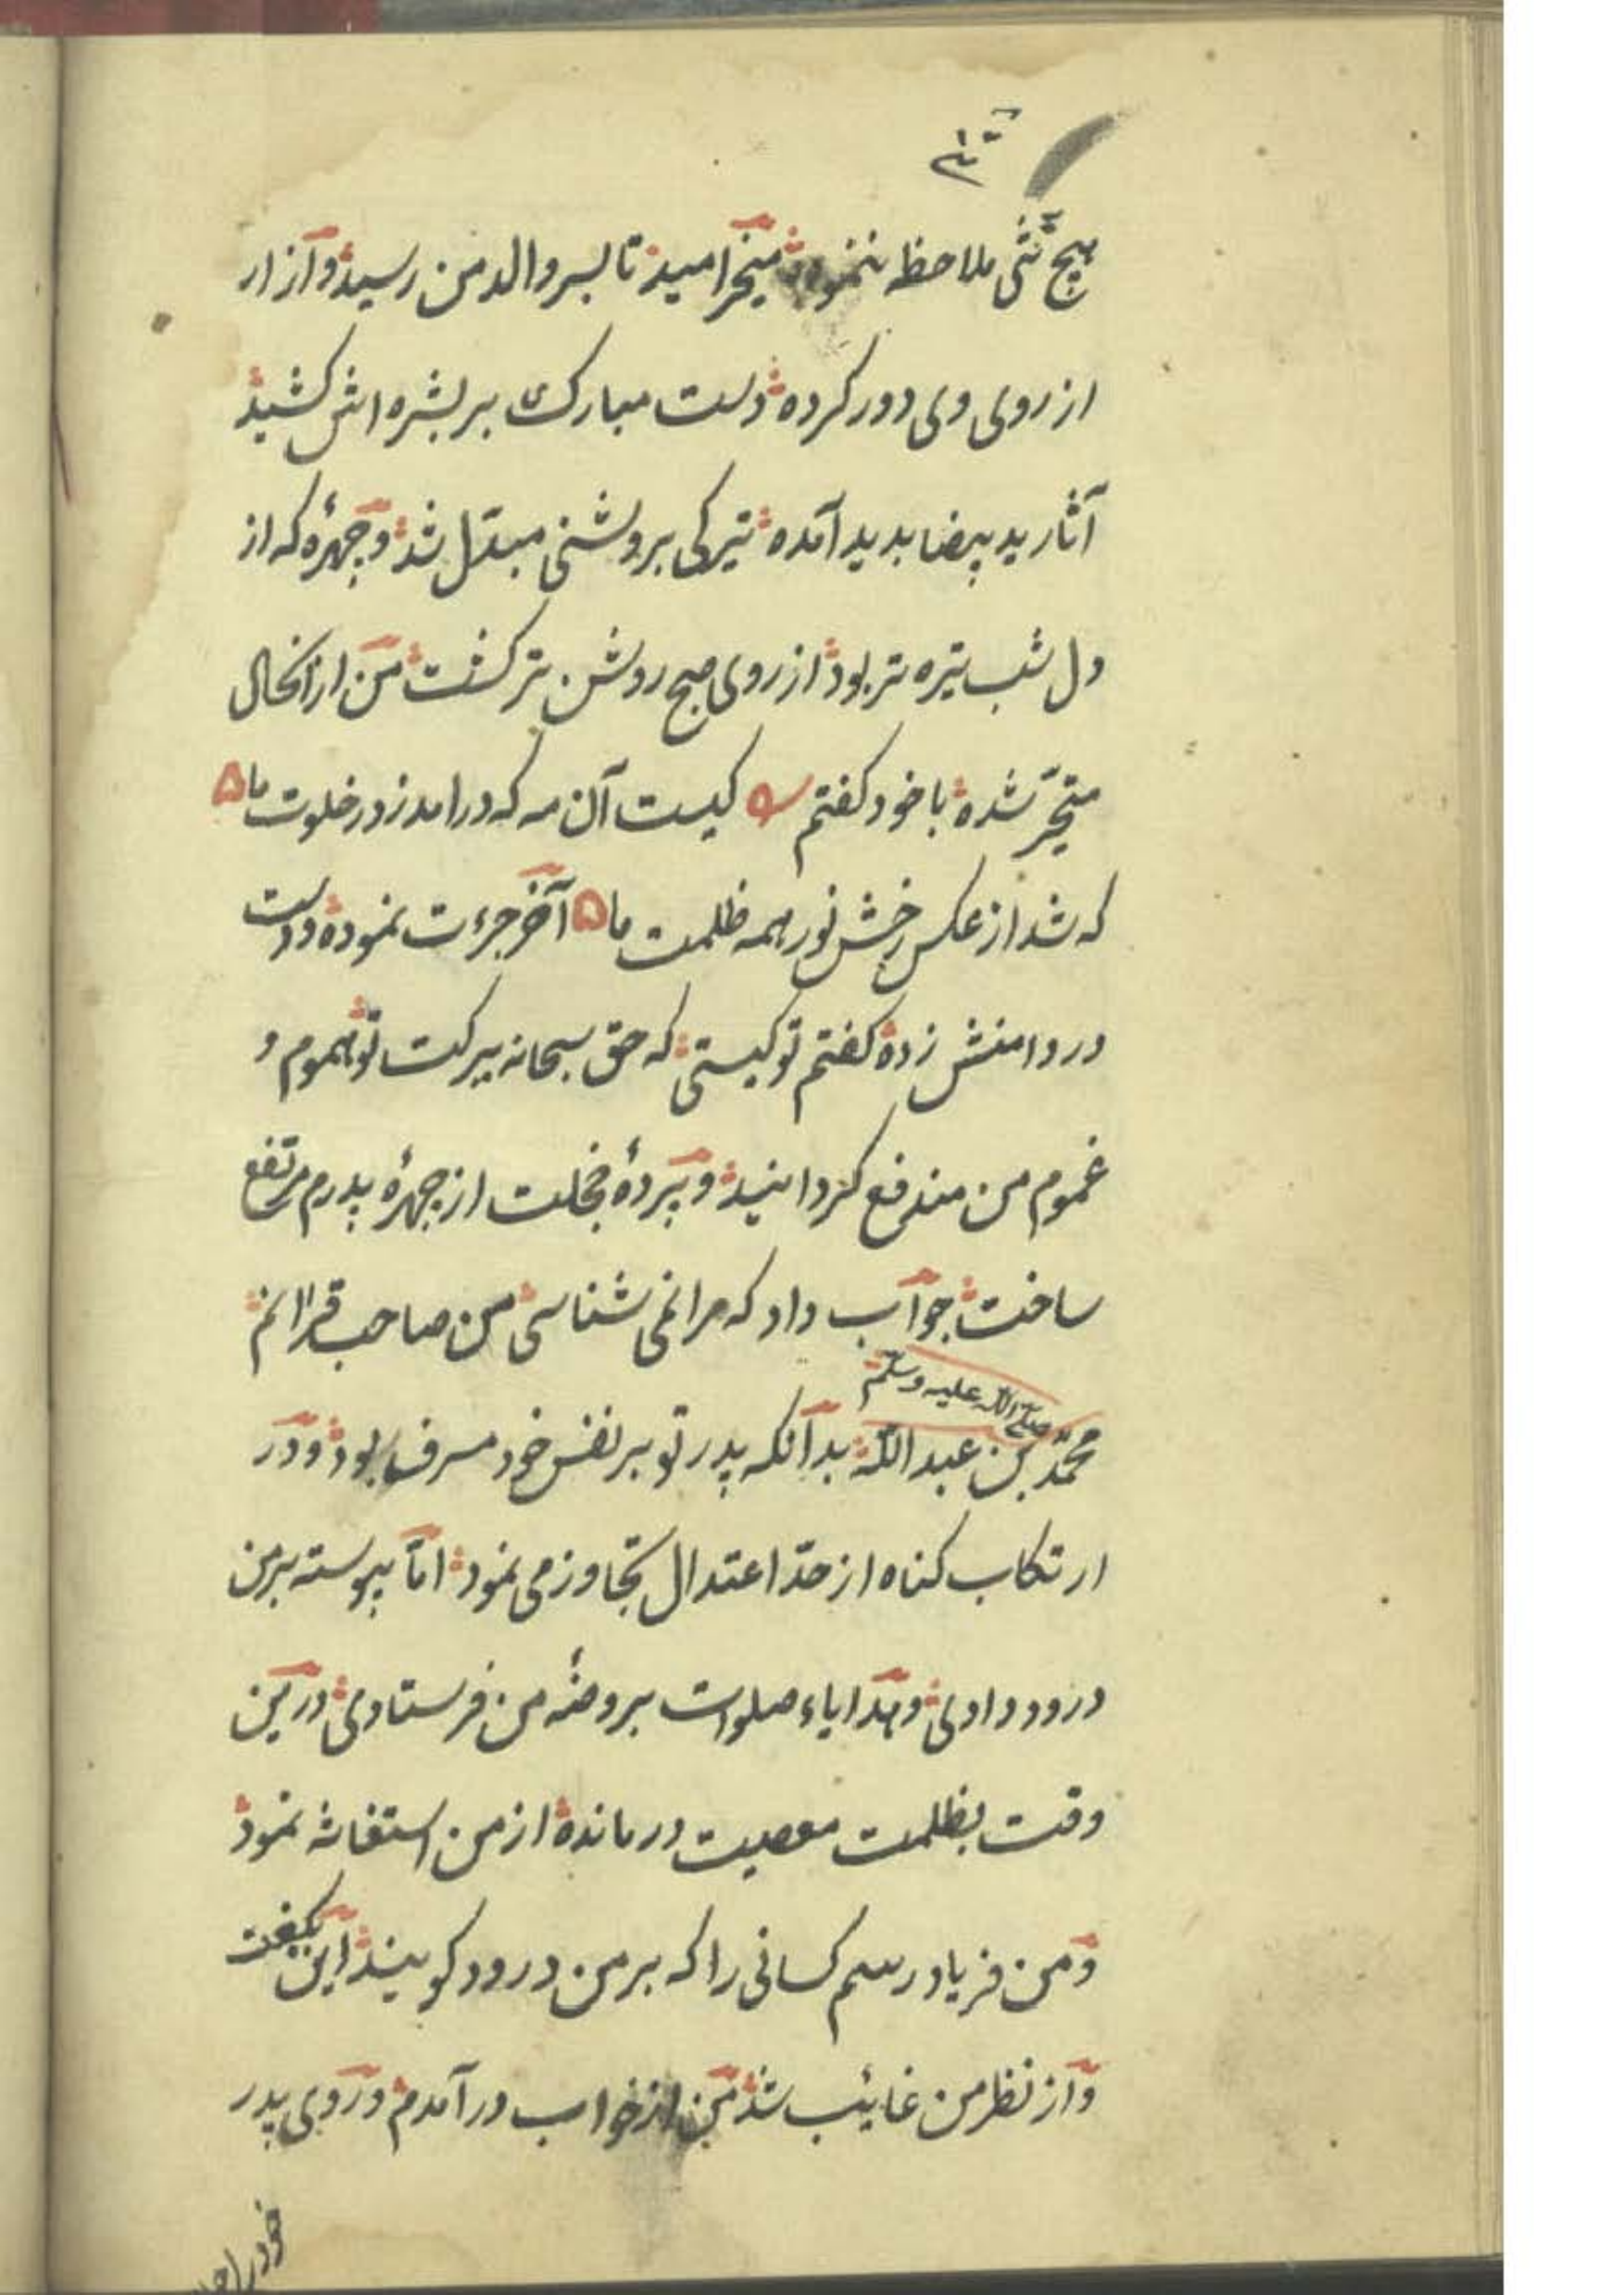 هیچ شیٔ ملاحظه ننموده میخرامید تا بسر والد من رسید و آزار
از روی وی دور کرده دست مبارک بر بشره اش کشید
آثار ید بیضا بدید آمده تیرکی بروشنی مبدّل شد و چهرهٔ که از
دل شب تیره تر بود از روی صبح روشن تر کشت من ازانحال
متحیّر شده با خود کفتم کیست آن مه که درامد ز در خلوت ما
که شد از عکس رخش نور همه ظلمت ما آخر جرءت نموده و دست
در دامنش زده کفتم تو کیستی که حق سبحانه ببرکت تو هموم و
غموم من مندفع کردانید و پردهٔ خجلت از چهرهٔ پدرم مرتفع
ساخت جواب داد که مرا نمی شناسی من صاحب قرانم
صلّی اللّه علیه وسلّم
محمّد بن عبد اللّه بدانکه پدر تو بر نفس خود مسرف بود و در
ارتکاب کناه از حدّ اعتدال تجاوز می نمود امّا پیوسته بر من
درود دادی و هدایاء صلوات بروضهٔ من فرستادی درین
وقت بظلمت معصیت درمانده از من استغاثه نمود
و من فریاد رسم کسانی را که بر من درود کویند این بکفت
و از نظر من غائب شد من از خواب در آمدم و روی پدر
خود را